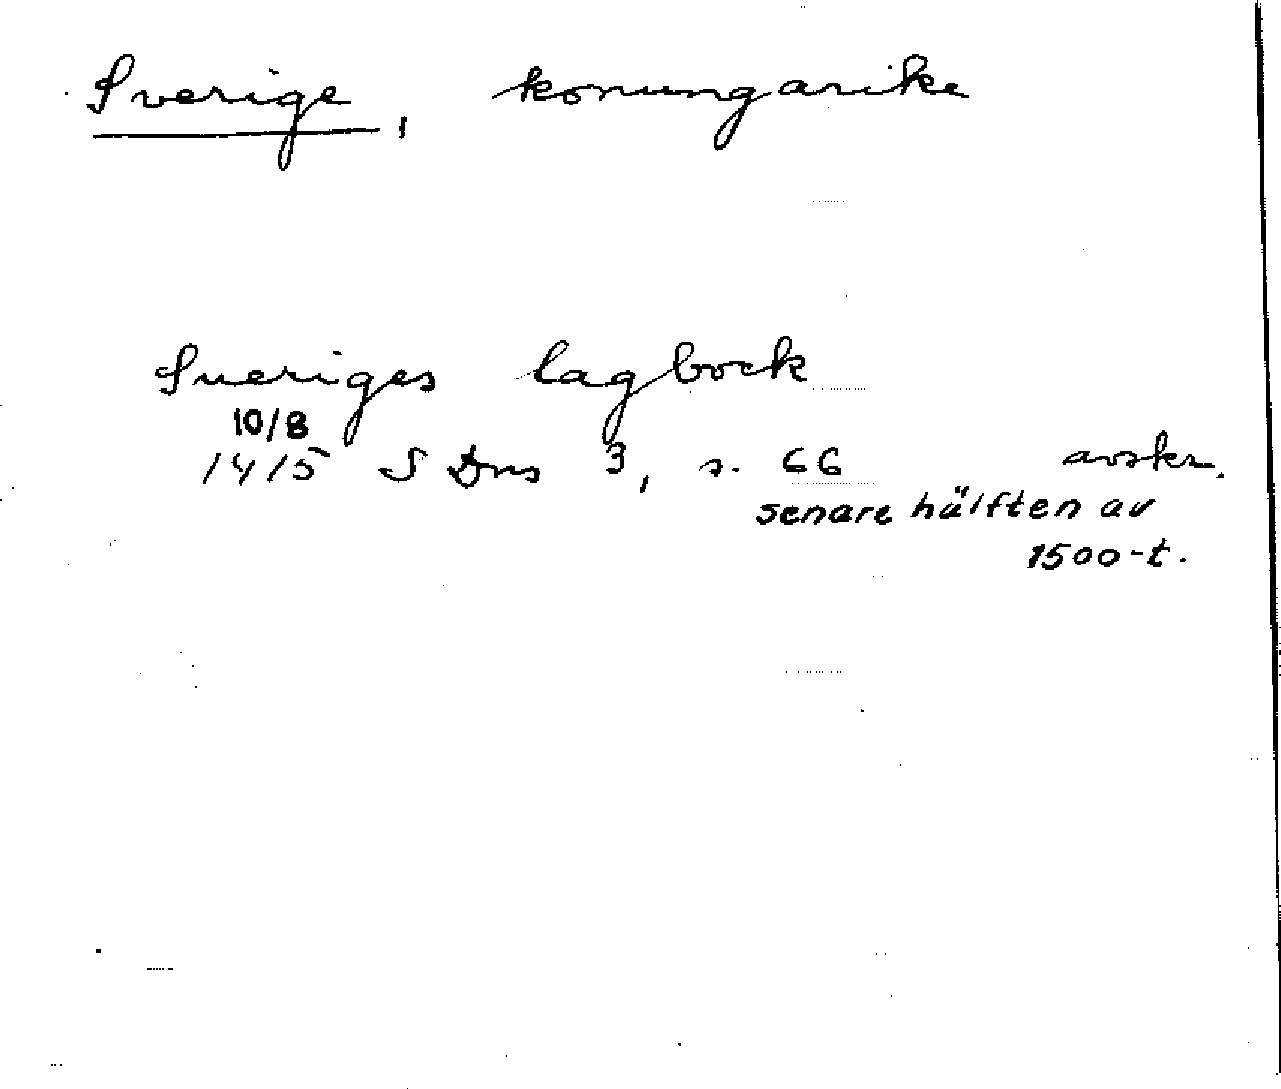 Sverige, konungarike
Sueriges lagbock
10/8
1415 S Dns 3, s. 66 avskr.
senare hälften av
1500-t.